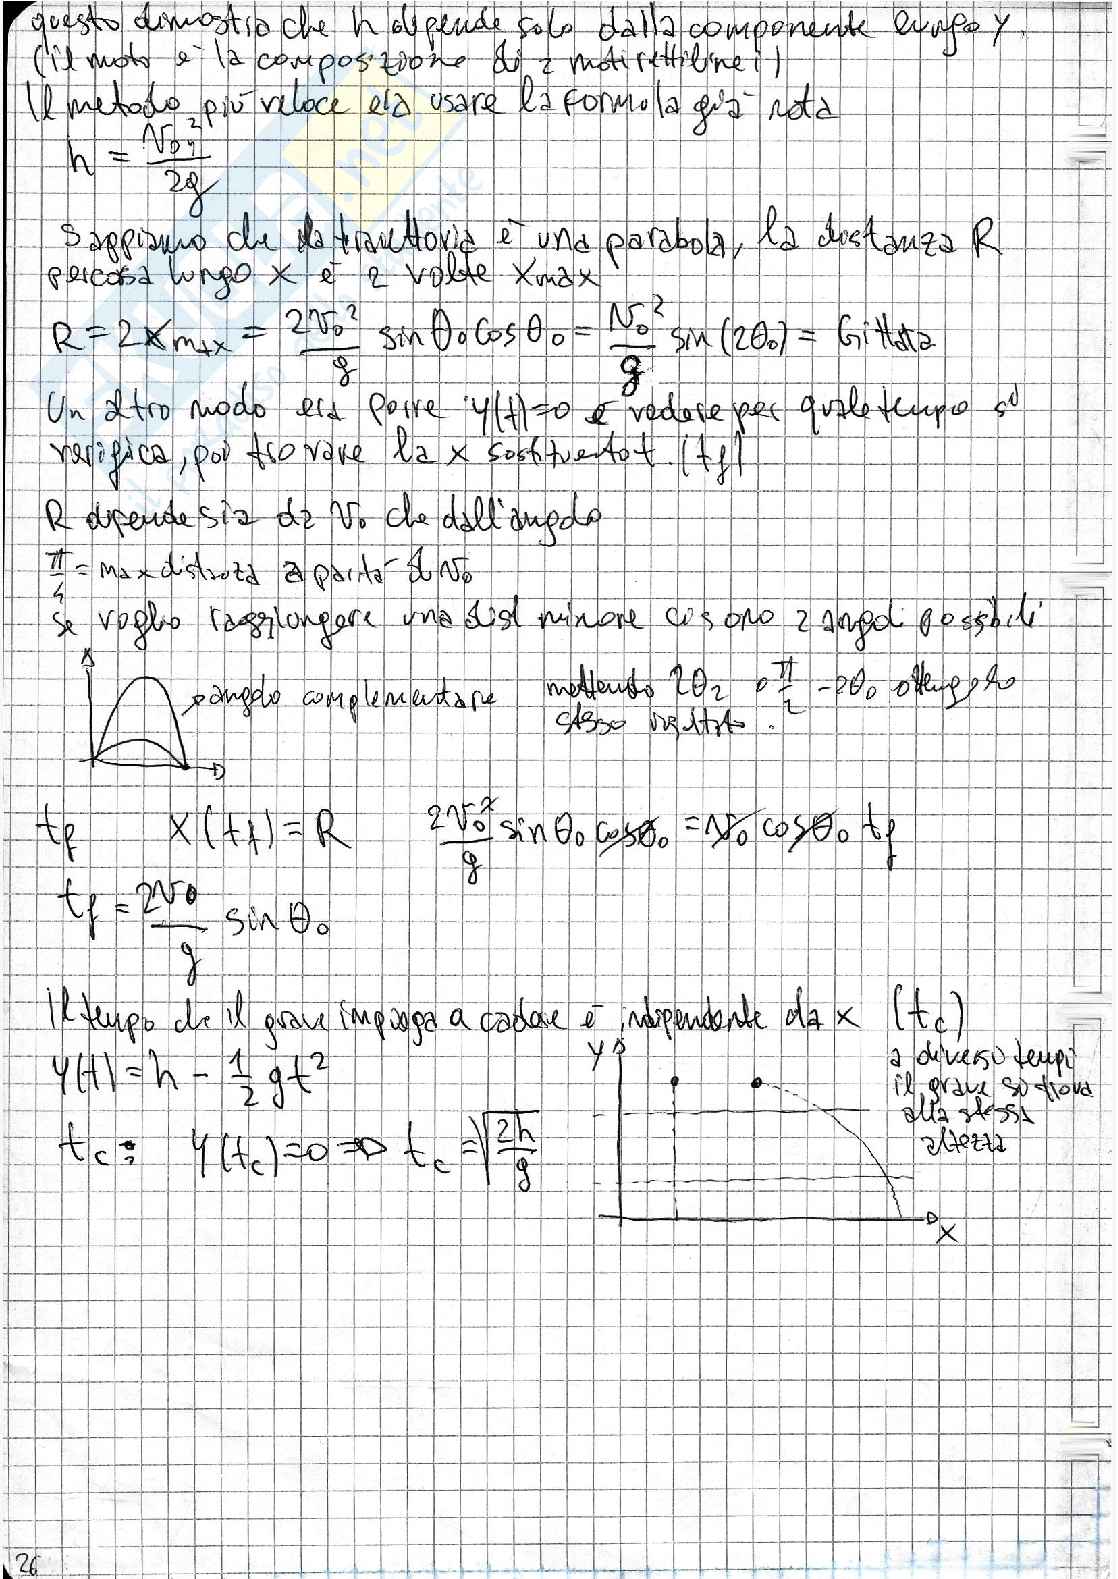 questo dimostra che h dipende solo dalla componente lungo y.
(il moto è la composizione di 2 moti rettilinei)
Il metodo più veloce era usare la formula già nota
h = V₀y² / 2g
Sappiamo che la traiettoria è una parabola, la distanza R
percorsa lungo x è 2 volte xmax
R = 2xmax = 2V₀²/g sin θ₀ cos θ₀ = V₀²/g sin(2θ₀) = Gittata
Un altro modo era porre y(t)=0 e vedere per quale tempo si
verifica, poi trovare la x sostituendo t. (tf)
R dipende sia da V₀ che dall'angolo
π/4 = max distanza a parità di V₀
se voglio raggiungere una dist minore ci sono 2 angoli possibili
angolo complementare
mettendo 2θ₂ o π/2 - 2θ₀ ottengo lo
stesso risultato.
tf x(tf) = R 2V₀²/g sin θ₀ cos θ₀ = V₀ cos θ₀ tf
tf = 2V₀/g sin θ₀
Il tempo che il grave impiega a cadere è indipendente da x (tc)
y(t) = h - 1/2 gt²
tc: y(tc)=0 ⇒ tc = √(2h/g)
y
x
a diversi tempi
il grave si trova
alla stessa
altezza
26